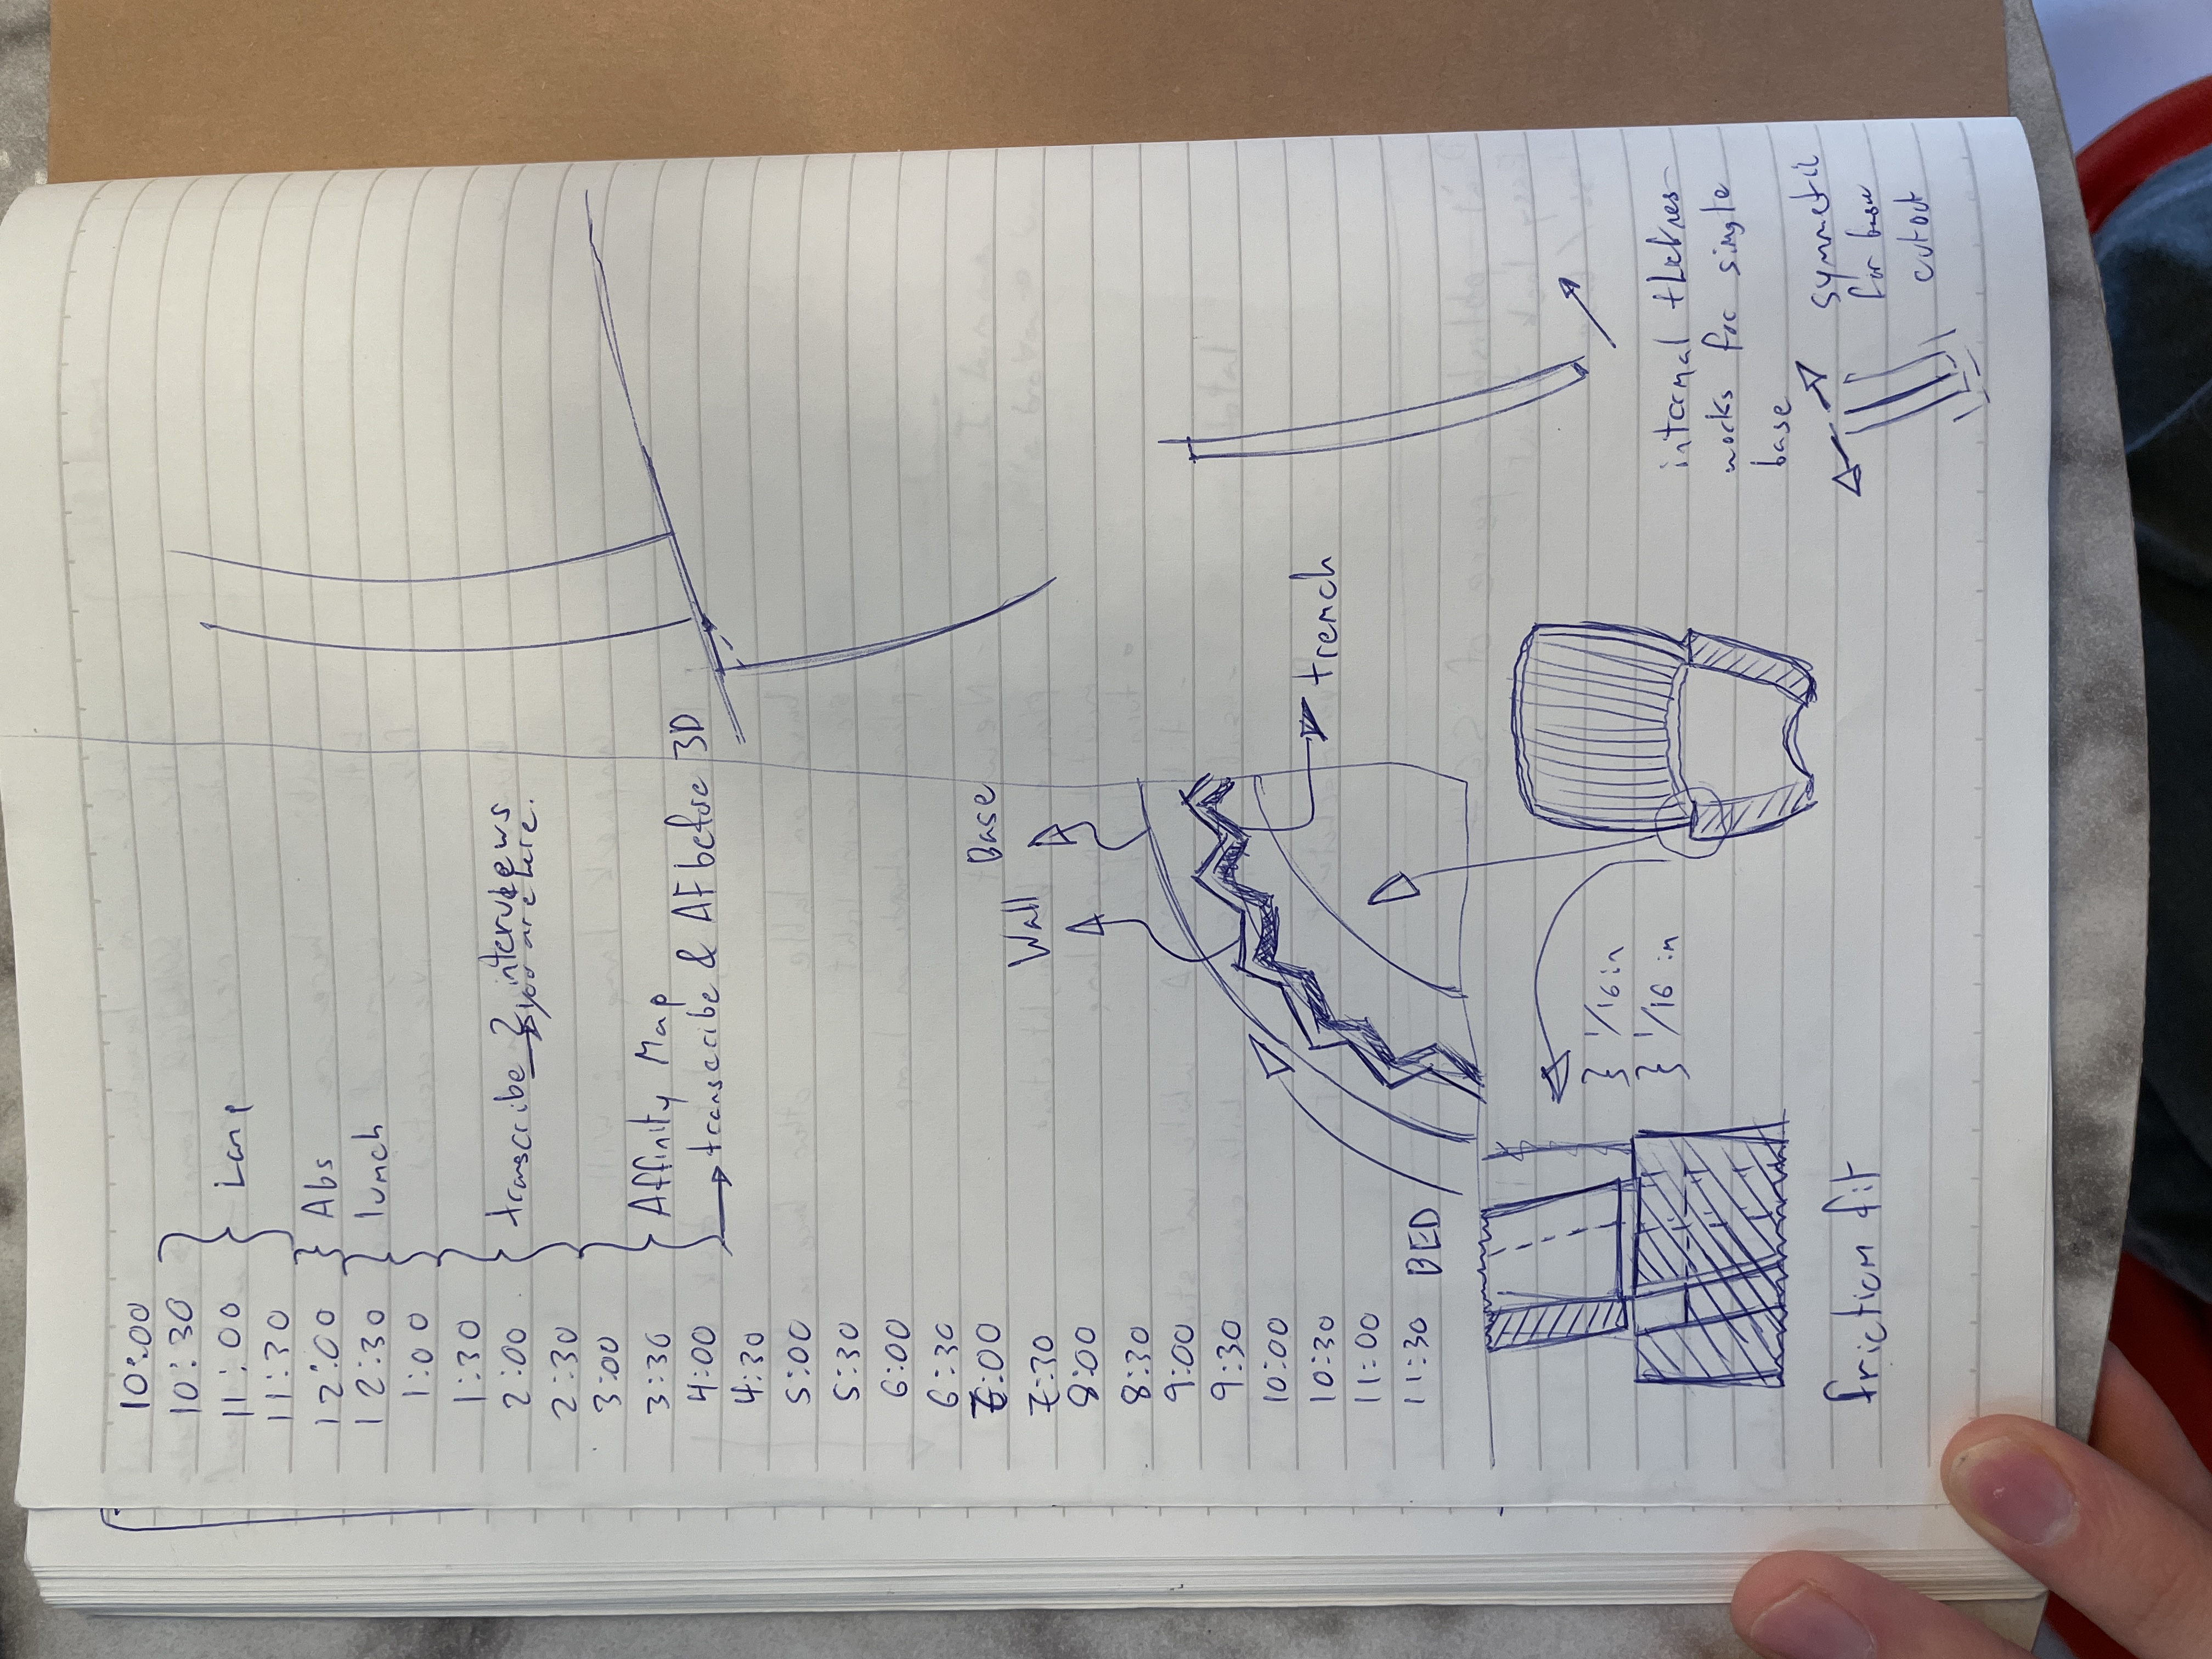 10:00
10:30
11:00 Lamp
11:30
12:00 Abs
12:30 lunch
1:00
1:30
2:00 transcribe 2 interviews
you are here.
2:30
3:00
3:30 Affinity Map
4:00 transcribe & AF before 3D
4:30
5:00
5:30
6:00
6:30
7:00
7:30
8:00
8:30
9:00
9:30
10:00
10:30
11:00
11:30 BED
Base
Wall
trench
1/16 in
1/16 in
friction fit
internal thicknes
works for single
base
symmetric
for base
cutout